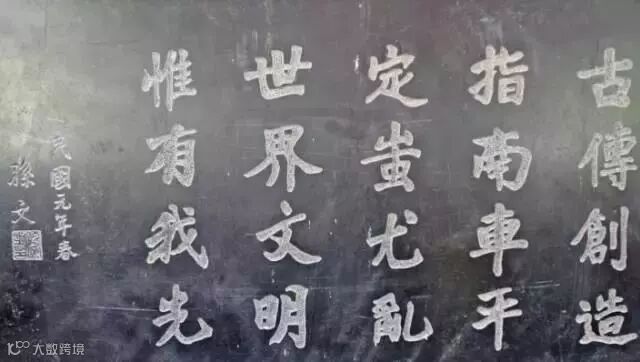 古傳創造
指南車平
定蚩尤亂
世界文明
惟有我光
民國元年春
孫文
大數跨境